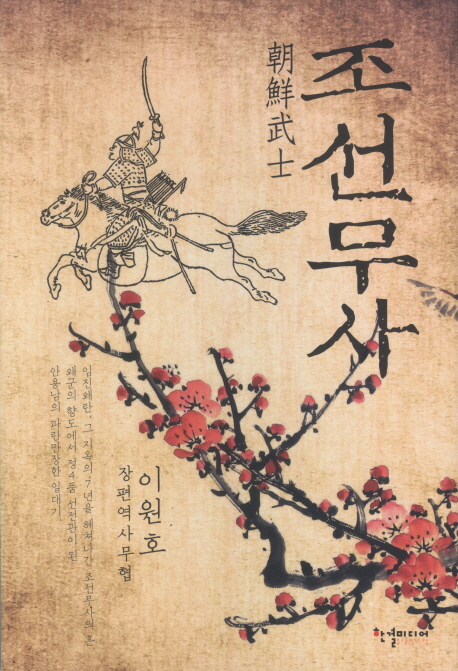 조선무사
朝鮮武士
이원호
장편역사무협
임진왜란, 그 지옥의 7년을 헤쳐나간 조선무사의 혼
왜군의 향도에서 정4품 선전관이 된
안용남의 파란만장한 일대기
한결미디어